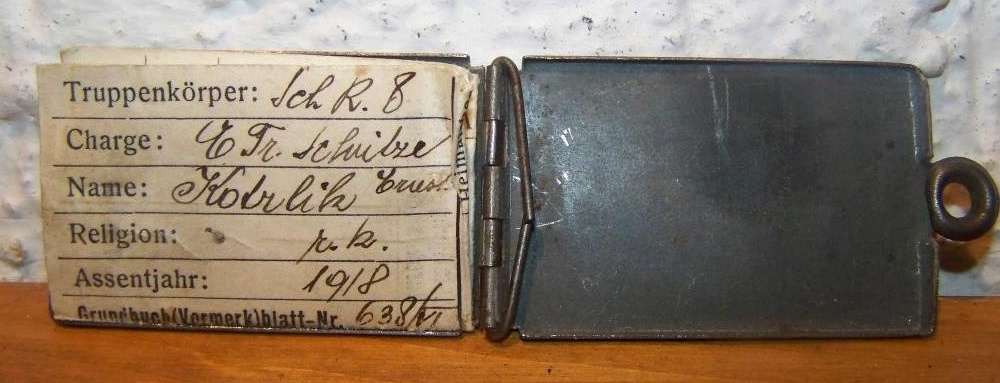 Truppenkörper: Sch R. 8
Charge: E Tr. Schütze
Name: Kotrlik Ernst
Religion: r. k.
Assentjahr: 1918
Grundbuch(Vormerk)blatt-Nr. 638/VI
Heim